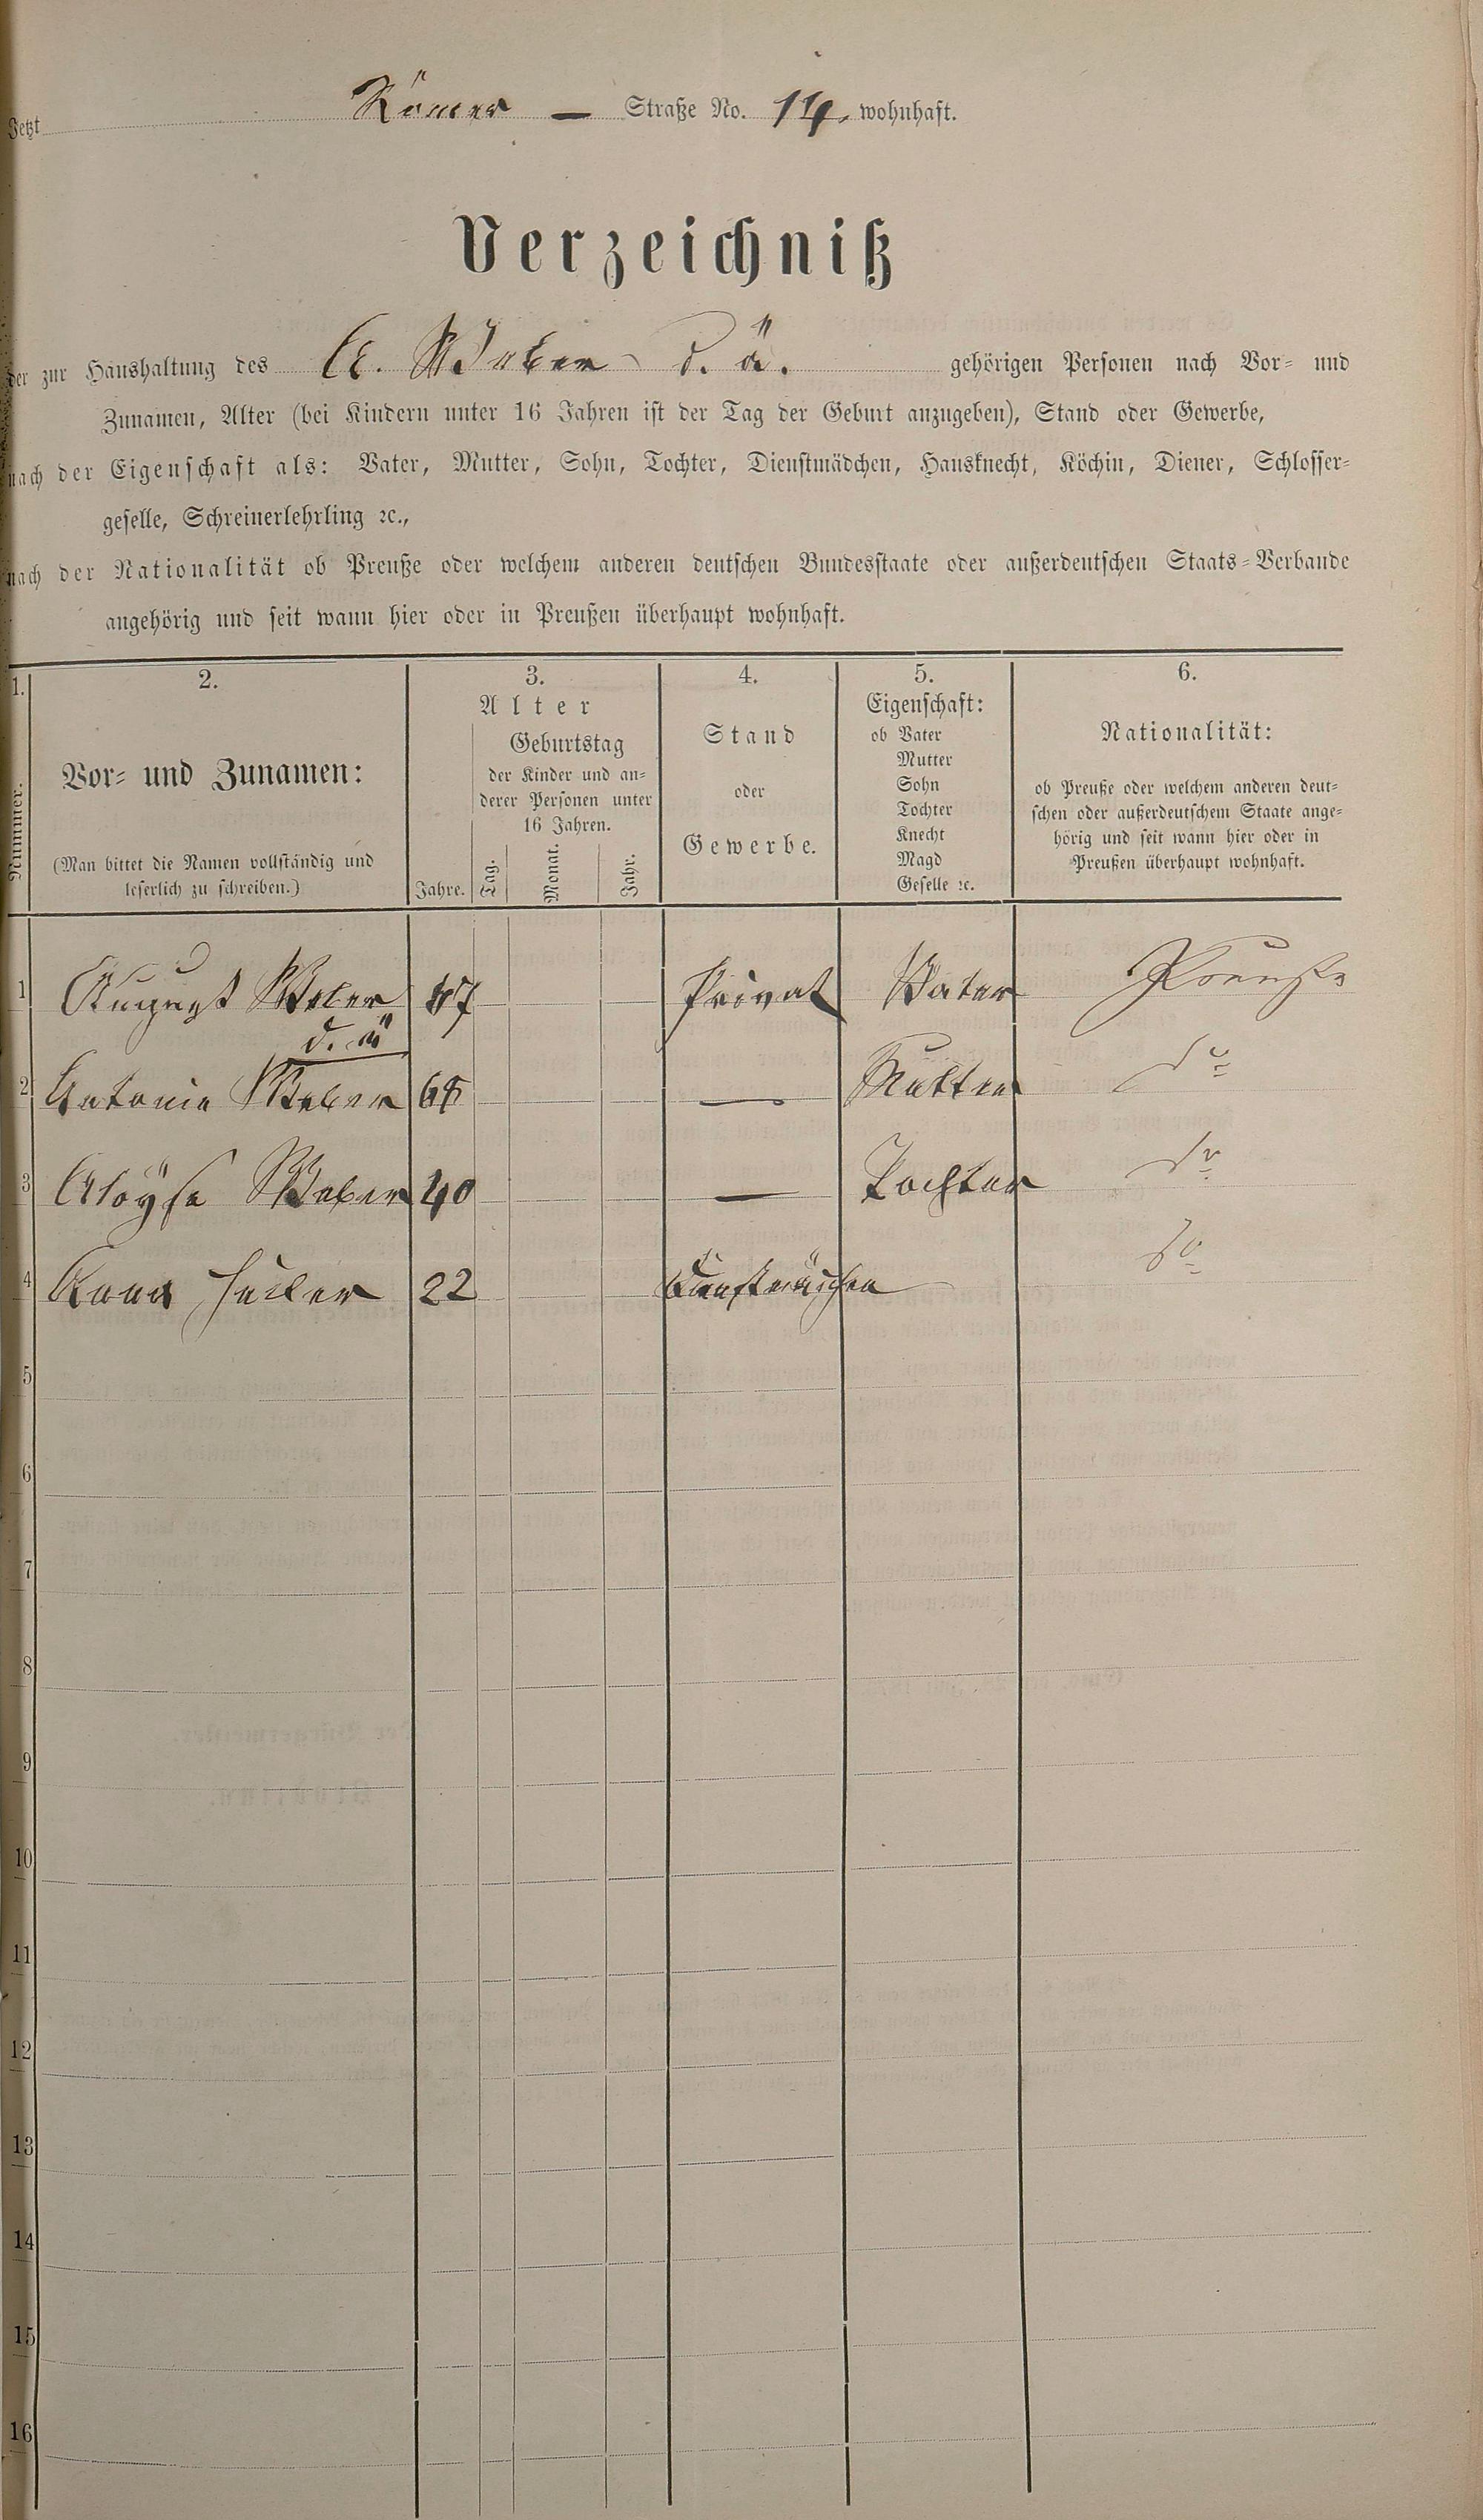 Jetzt Römer — Straße No. 14. wohnhaft.
Verzeichniß
der zur Haushaltung des A. Weber d. ä. gehörigen Personen nach Vor- und
Zunamen, Alter (bei Kindern unter 16 Jahren ist der Tag der Geburt anzugeben), Stand oder Gewerbe,
nach der Eigenschaft als: Vater, Mutter, Sohn, Tochter, Dienstmädchen, Hausknecht, Köchin, Diener, Schlosser-
geselle, Schreinerlehrling ꝛc.,
nach der Nationalität ob Preuße oder welchem anderen deutschen Bundesstaate oder außerdeutschen Staats-Verbande
angehörig und seit wann hier oder in Preußen überhaupt wohnhaft.
1. 2. 3. 4. 5. 6.
Nummer.
Vor- und Zunamen:
(Man bittet die Namen vollständig und
leserlich zu schreiben.)
Alter
Geburtstag
der Kinder und an-
derer Personen unter
16 Jahren.
Jahre. Tag. Monat. Jahr.
Stand
oder
Gewerbe.
Eigenschaft:
ob Vater
Mutter
Sohn
Tochter
Knecht
Magd
Geselle ꝛc.
Nationalität:
ob Preuße oder welchem anderen deut-
schen oder außerdeutschem Staate ange-
hörig und seit wann hier oder in
Preußen überhaupt wohnhaft.
1 August Weber Privat Vater Preuße
d. ä
2 Antonie Weber — Mutter do
3 Aloÿse Weber 40 — Tochter do
4 Anna 22 Dienstmädchen do
5
6
7
8
9
10
11
12
13
14
15
16